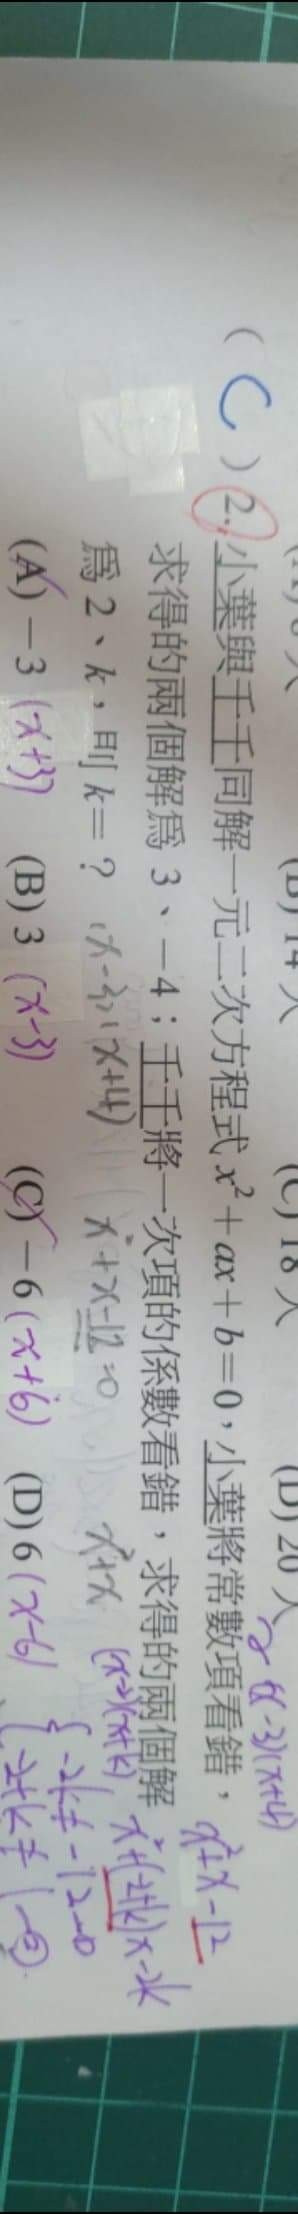 (B) 14 人 (C) 18 人 (D) 20 人
( C ) 2. 小葉與千千同解一元二次方程式 x² + ax + b = 0，小葉將常數項看錯，
求得的兩個解為 3、-4；千千將一次項的係數看錯，求得的兩個解
為 2、k，則 k = ?
(x-3)(x+4) x²+x-12=0 x²+x
(A) -3 (x+3) (B) 3 (x-3) (C) -6 (x+6) (D) 6 (x-6)
(x-3)(x+4)
x²+x-12
(x-2)(x+k)
x²+(-2+k)x-2k
-2k≠-12
-2+k≠1